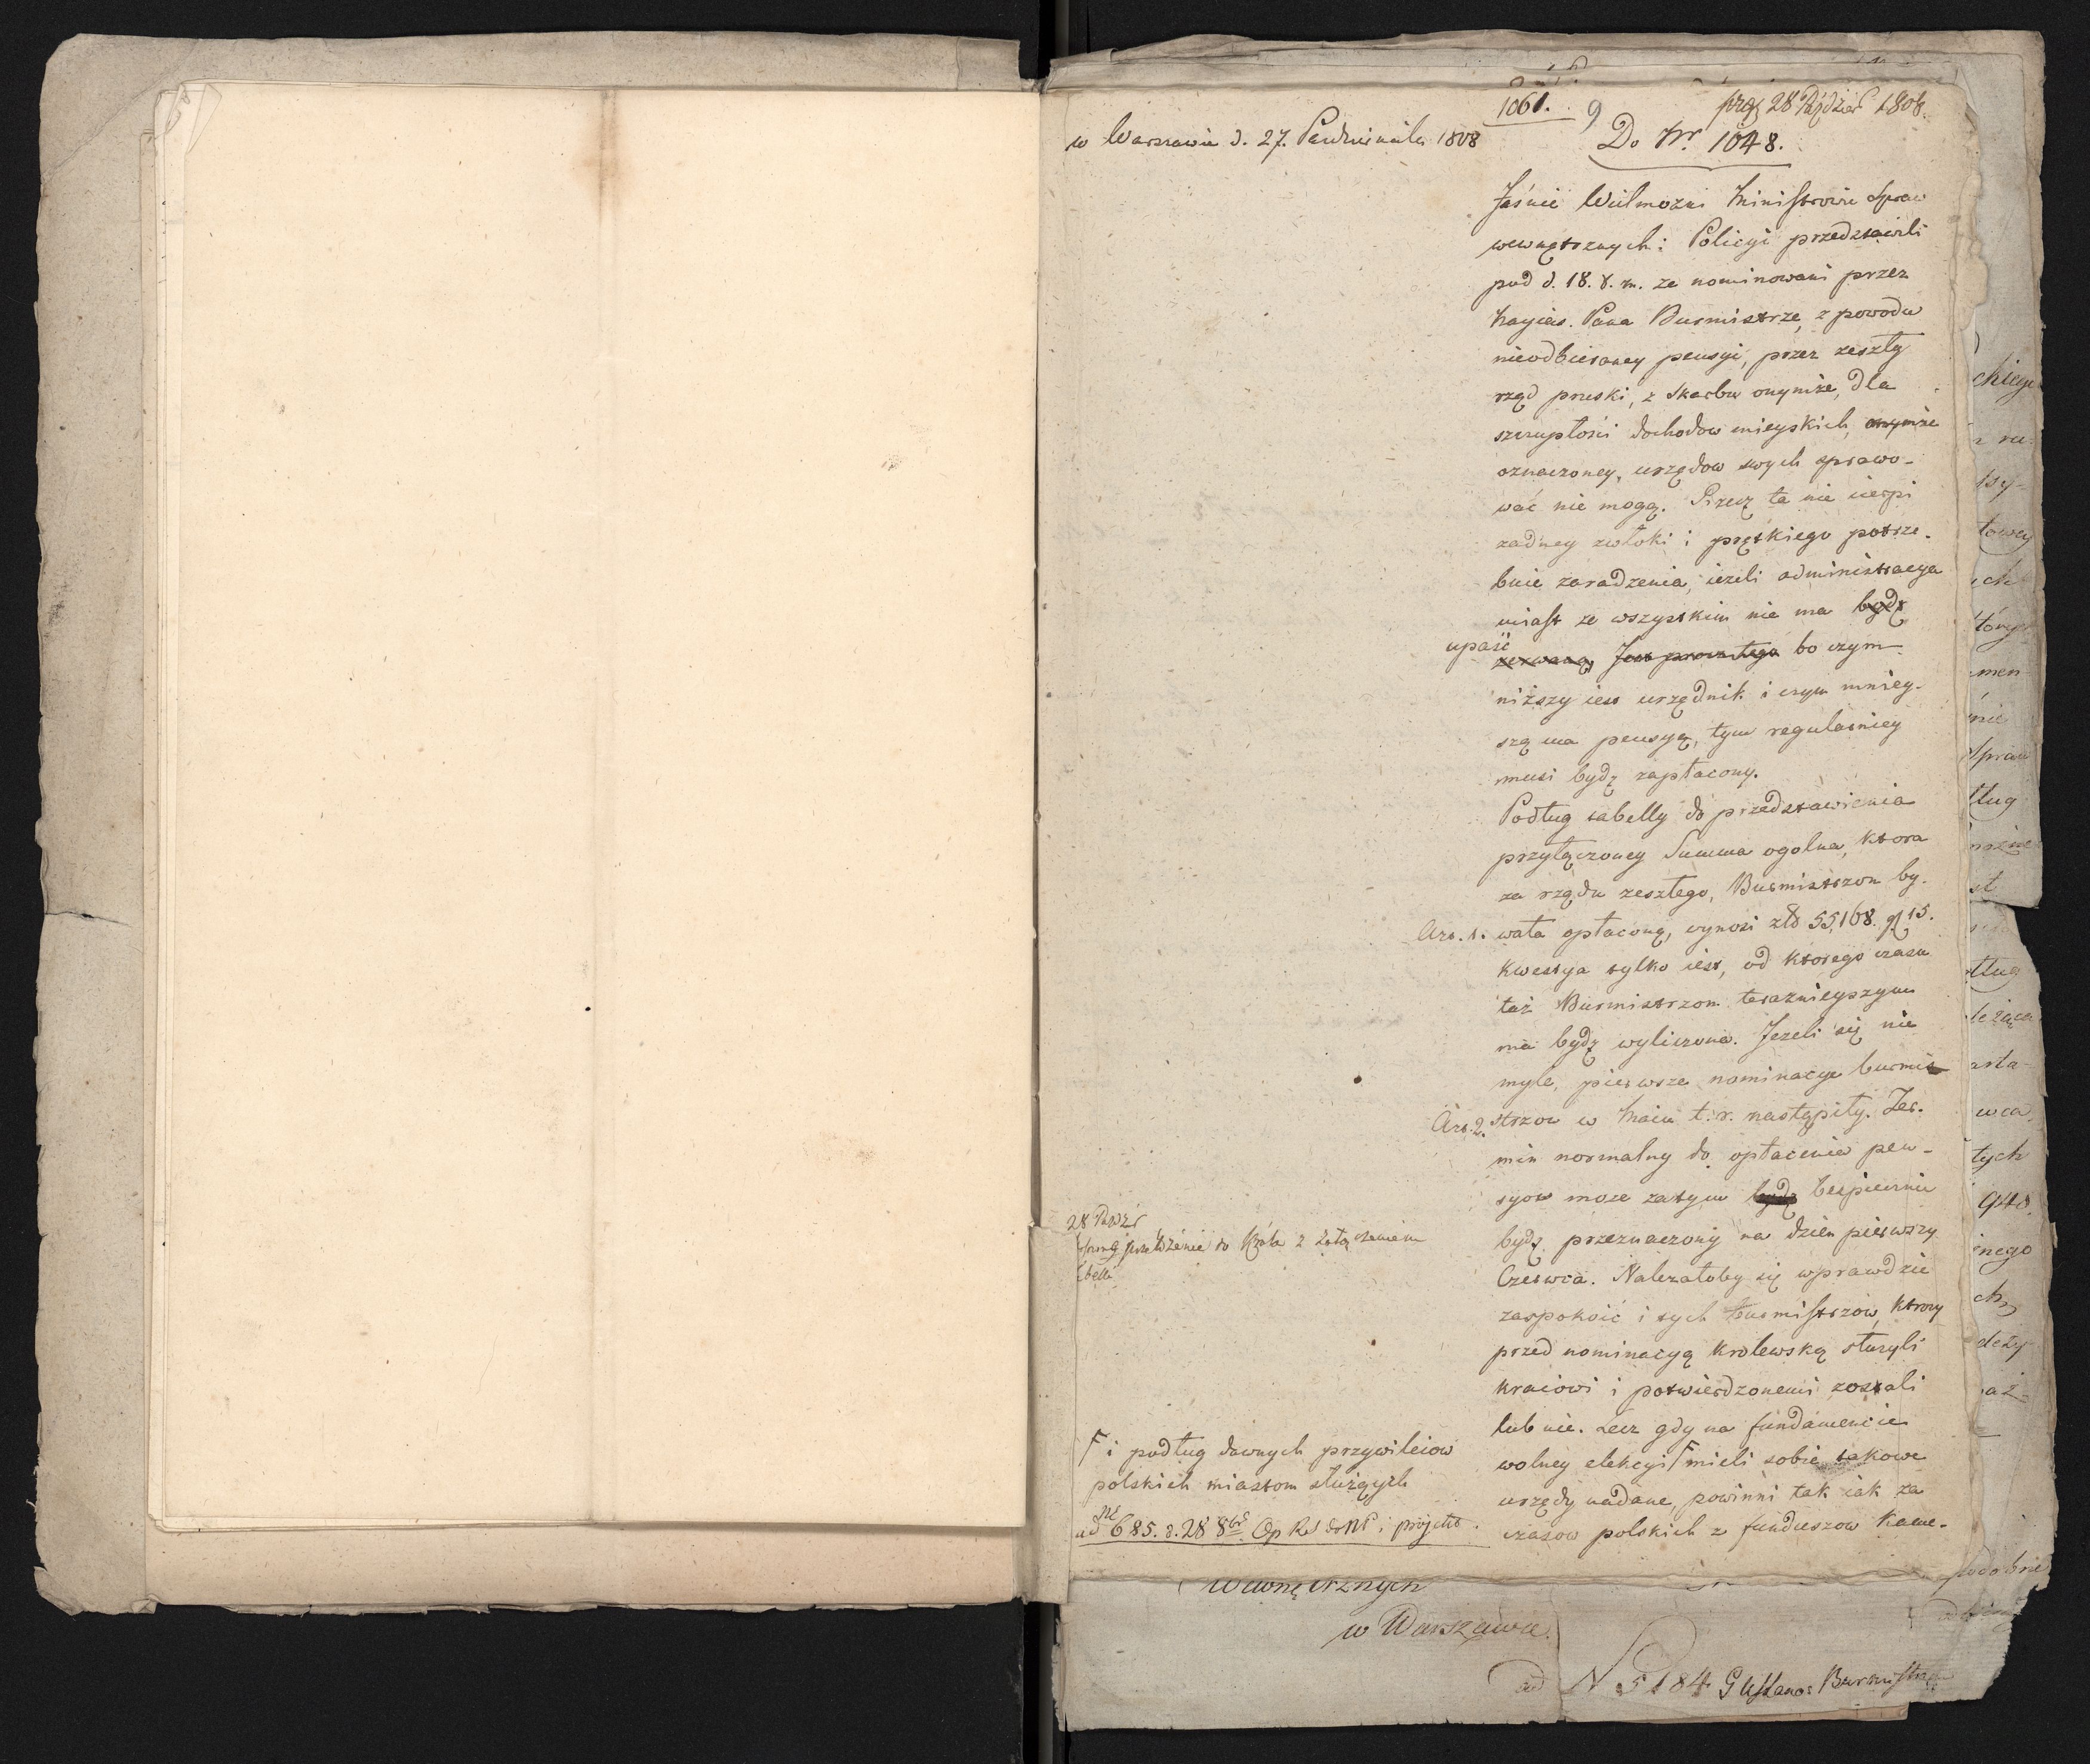 1061. 9
prez 28 Paździer 1808.
w Warszawie d. 27. Pazdziernika 1808
Do Nr. 1048.
Jaśnie Wielmozni Ministrowie Spraw
wewnętrznych i Policyi przedstawili
pod d. 18. t. m. ze nominowani przez
Nayias. Pana Burmistrze, z powodu
nieodbieraney pensyi, przez zeszły
rząd pruski, z skarbu onymże, dla
szczupłości dochodow mieyskich, onymże
oznaczoney, urzędow swych sprawo-
wać nie mogą. Rzecz ta nie cierpi
zadney zwłoki i prętkiego potrze-
buie zaradzenia, iezeli administracya
miast ze wszystkim nie ma bydź
upaść
zerwaną, Jest procz tego bo czym
niższy iest urzędnik i czym mniey-
szą ma pensyą, tym regularniey
musi bydź zapłacony.
Podług tabelly do przedstawienia
przyłączoney Summa ogolna, ktora
za rządu zeszłego, Burmistrzom by-
Ars. 1. wała opłaconą, wynosi złt 55,168. gl 15.
Kwestya tylko iest, od ktorego czasu
taż Burmistrzom teraznieyszym
ma bydź wyliczona. Jezeli się nie
mylę, pierwsze nominacye burmi-
Ars. 2. strzow w Maiu t. r. nastąpiły. Ter-
min normalny do opłacenia pen-
syow moze zatym bydź bespiecznie
bydź przeznaczony na dzien pierwszy
Czerwca. Nalezałoby się wprawdzie
zaspokoić i tych burmistrzow, ktorzy
przed nominacyą Krolewską służyli
kraiowi i potwierdzonemi zostali
lub nie. Lecz gdy na fundamencie
wolney elekcyi F mieli sobie takowe
urzędy nadane, powinni tak iak za
czasow polskich z funduszow Kame-
28 Paźdź
przełożenie do Króla z załączeniem
tabelli
F i podług dawnych przywileiow
polskich miastom służących
ad Nr 685. d. 28 8br Exp. i projekt.
Wewnętrznych
w Warszawie.
ad N 5184 Burmistrz